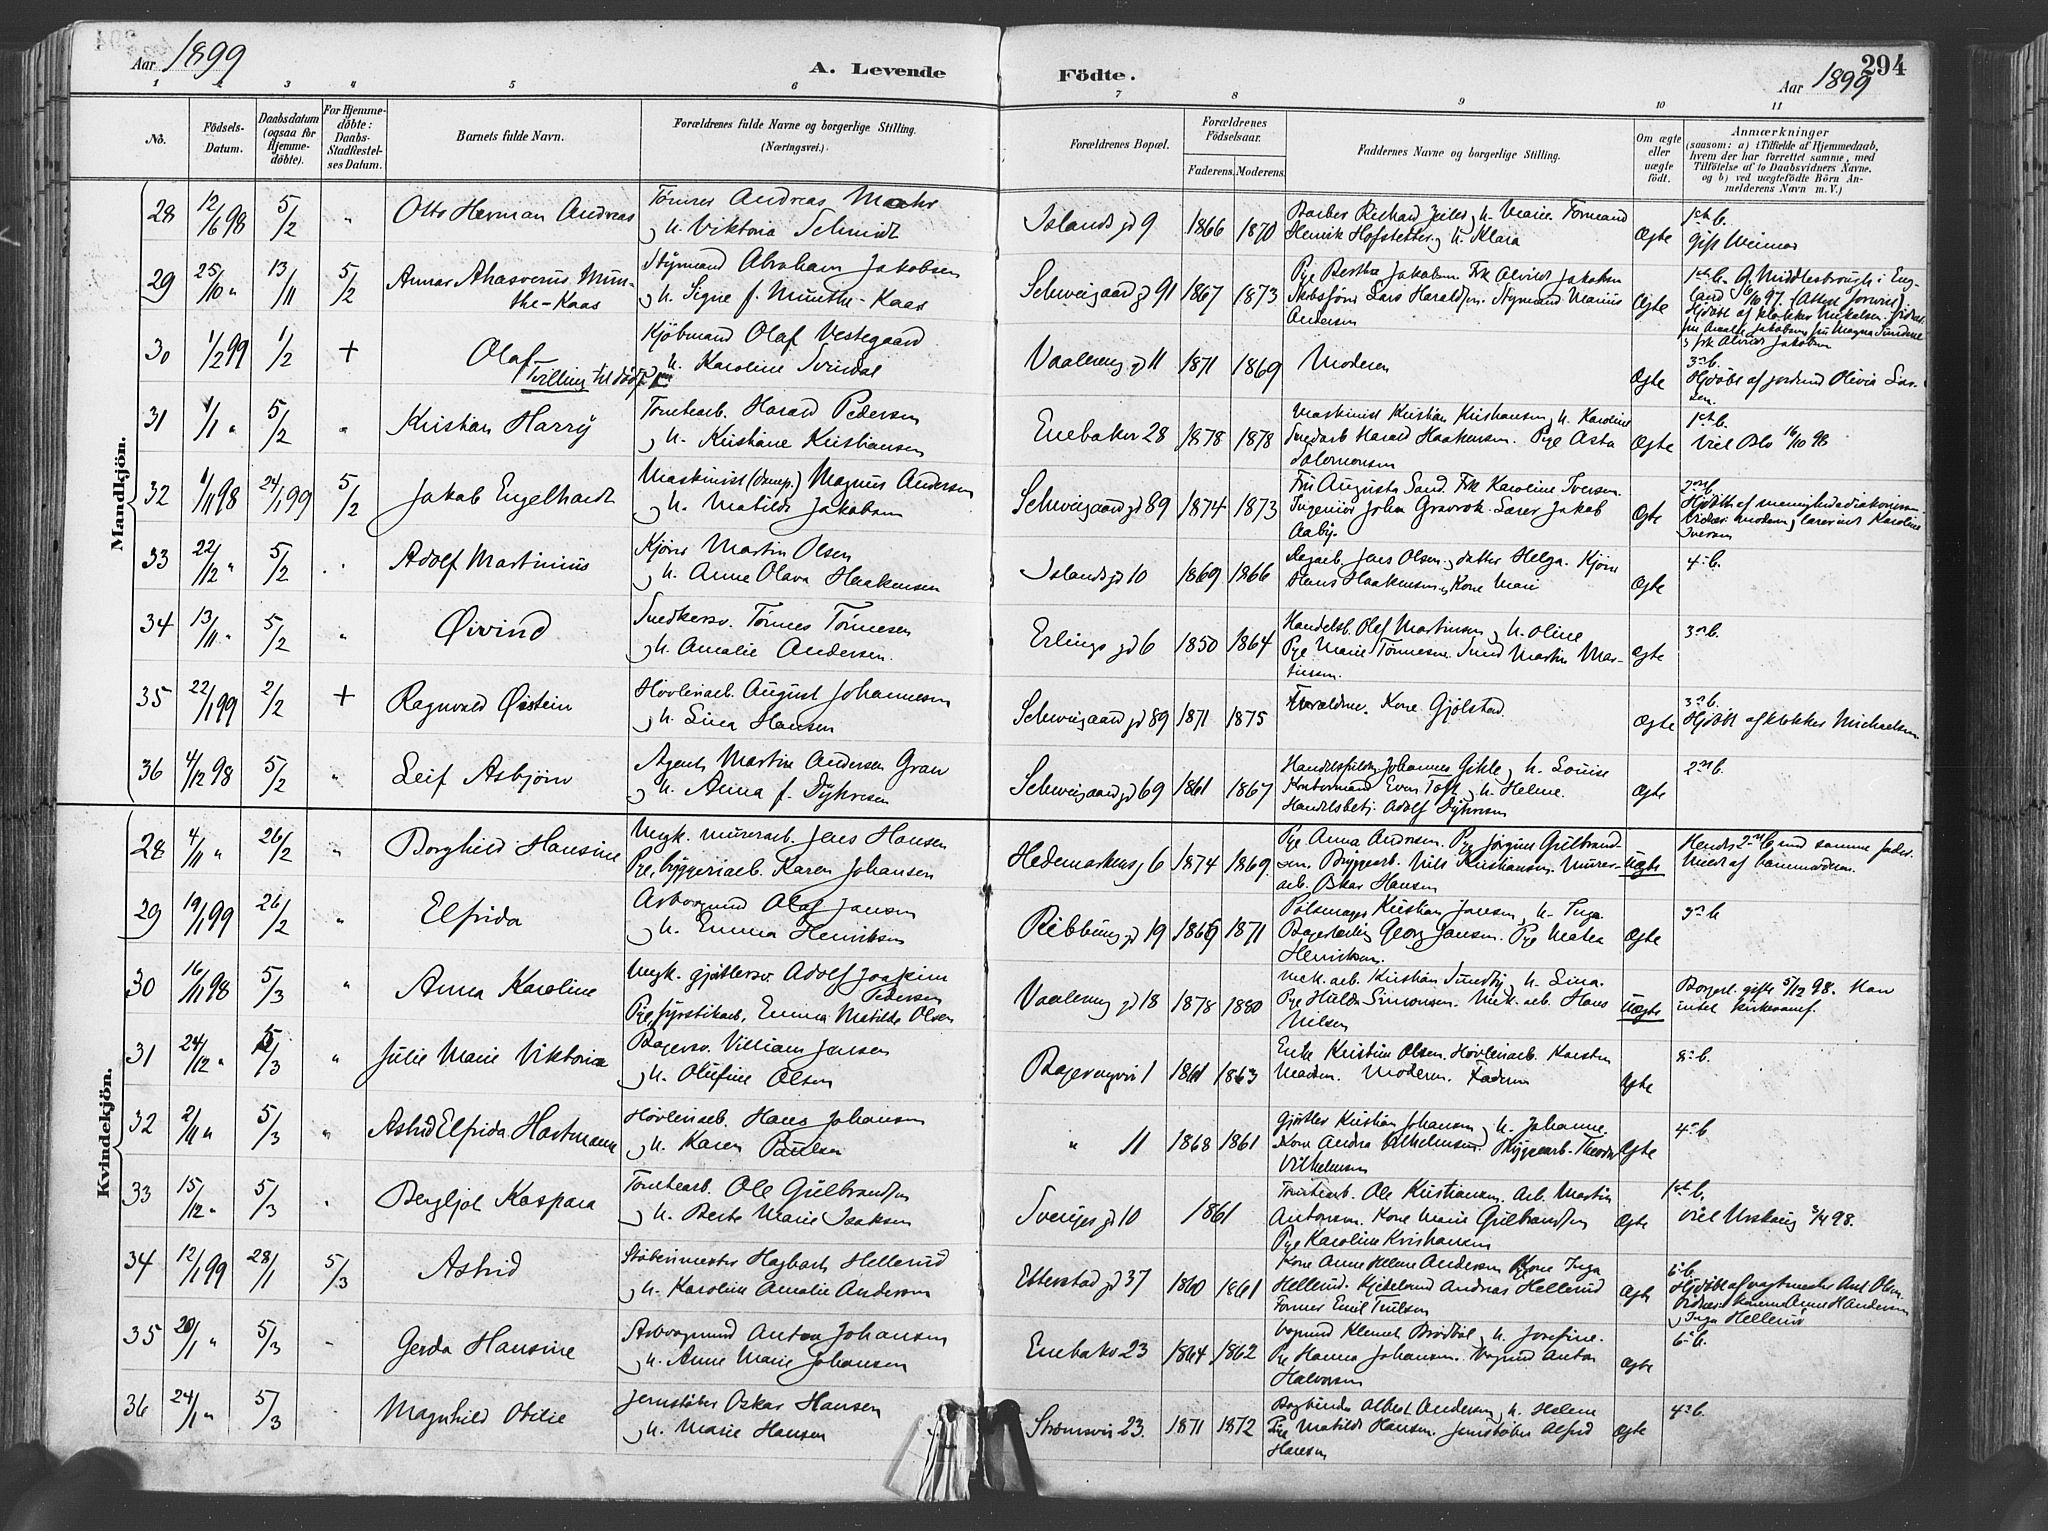 Aar 1899
A. Levende
Födte.
294
Aar 1899
1 2 3 4 5 6 7 8 9 10 11
No.
Födsels-
Datum.
Daabsdatum
(ogsaa for
Hjemme-
döbte).
For Hjemme-
döbte:
Daabs-
Stadfæstel-
ses Datum.
Barnets fulde Navn.
Forældrenes fulde Navne og borgerlige Stilling.
(Næringsvei.)
Forældrenes Bopæl.
Forældrenes
Födselsaar.
Faderens. Moderens.
Faddernes Navne og borgerlige Stilling.
Om ægte
eller
uægte
født.
Anmærkninger
(saasom: a) i Tilfælde af Hjemmedaab,
hvem der har forrettet samme, med
Tilföielse af to Daabsvidners Navne.
og b) ved uægtefödte Börn An-
melderens Navn m. V.)
Mandkjön.
28 12/6 98 5/2 " Otto Herman Andreas
Andreas
u. Viktoria Schmidt
Islands gd 9 1866 1870
Barber Richard u. Marie
Henrik Hofstetter u. Klara
Ægte
1st b.
gift Weimar
29 25/10 " 13/11 5/2 Annar Ahasverus Mun-
the-Kaas
Styrmand Abraham Jakobsen
u. Signe f. Munthe-Kaas
Schweigaard gd 91 1867 1873
Pige Bertha Jakobsen. Frk Alvilde Jakobsen
Skibsfører Lars Haraldsen. Styrmand Marius
Andersen
Ægte
1st b. G. Middlesbrough i Eng-
land
Hjdøbt af klokker
frk Alvilde Jakobsen
30 1/2 99 1/2 + Olaf
Tvilling til dødf.
Kjøbmand Olaf Vestegaard
u. Karoline Svindal
Vaalereng gd 11 1871 1869 Moderen Ægte
3die b.
Hjdøbt af jordmd Olivia Lar-
sen.
31 1/1 " 5/2 " Kristian Harry
Tomtearb. Harald Pedersen
u. Kristiane Kristiansen
Enebakv 28 1878 1878
Maskinist Kristian Kristiansen u. Karoline
Harald Haakensen. Pige Asta
Salomonsen
Ægte
1st b.
Viet Oslo 16/10 98
32 1/11 98 24/1 99 5/2 Jakob Engelhardt
Maskinist (damp.) Magnus Andersen
u. Matilde Jakobsen
Schweigaard gd 89 1874 1873
Fru Augusta Sand. Frk Karoline Iversen.
Ingeniør John Gravrok. Lærer Jakob
Aaby.
Ægte
2den b.
Hjdøbt af menighedsdiakonissen
Vidner: Moderen, Karoline
Iversen
33 22/12 " 5/2 " Adolf Martinius
Kjører Martin Olsen
u. Anne Olava Haakensen
Islands gd 10 1869 1866
Jens Olsen, datter Helga. Kjører
Hans Haakensen og Kone Marie
Ægte
4de b.
34 13/11 " 5/2 " Øivind
Snedkersv. Tønnes Tønnesen
u. Amalie Andersen.
Erlings gd 6 1850 1864
Handelsb. Olaf Martinsen u. Oline
Pige Marie Tønnesen. Smed Martin Mar-
tinsen.
Ægte
3die b.
35 22/1 99 2/2 + Ragnvald Øistein
Høvleriarb. August Johannesen
u. Lina Hansen
Schweigaard gd 89 1871 1875
Forældrene. Kone Gjølstad.
Ægte
3die b.
Hjdøbt af klokker Michaelsen
36 4/12 98 5/2 " Leif Asbjørn
Agent Martin Andersen Gran
u. Anna f. Dyhresen
Schweigaard gd 69 1861 1867
Johannes Gihle u. Louise
Kontormand Even Toft u. Helene.
Handelsbetj. Adolf Dyhresen
Ægte
2den b.
Kvindekjön.
28 4/11 " 26/2 " Borghild Hansine
Ungk. murerarb. Jens Hansen
Pige, bryggeriarb. Karen Johansen
Hedemarkens gd 6 1874 1869.
Pige Anna Andersen. Pige Jørgine Gulbrand-
sen. Bryggearb. Nils Kristiansen. Murer-
arb. Oskar Hansen
Uægte
Hendes 2den b. med samme fader.
Meldt af barnemoderen.
29 19/1 99 26/2 " Elfrida
Arbvognmd Olaf Jansen
u. Emma Henriksen
Ribbung gd 19 1869 1871
Pølsemager Kristian Jansen u. Inga.
Bagerlærling Georg Jansen. Pige Matea
Henriksen.
Ægte
3die b.
30 16/11 98 5/3 " Anna Karoline
Ungk. gjørtlersv. Adolf Joakim
Pedersen
Pige, fyrstikarb. Emma Matilde Olsen
Vaalereng gd 18 1878 1880
Mek. arb. Kristian Sundby u. Lina.
Pige Hulda Simonsen. Mek. arb. Hans
Nilsen
Uægte
Borgerl. gifte 5/12 98. Han
intet kirkesamf.
31 24/12 " 5/3 " Julie Marie Viktoria
Bagersv. Villiam Jensen
u. Olufine Olsen
Bagerengvei 1 1861 1863
Enke Kristine Olsen. Høvleriarb. Karsten
Madsen. Moderen. Faderen
Ægte
8de b.
32 2/11 " 5/3 " Astrid Elfrida Hartmann
Høvleriarb. Hans Johansen
u. Karen Paulsen
" 11 1868 1861
Gjørtler Kristian Johansen u. Johanne.
Kone Andrea Vilhelmsen. Bryggearb. Theodor
Vilhelmsen
Ægte
4de b.
33 15/12 " 5/3 " Bergljot Kaspara
Tomtearb. Ole Gulbrandsen
u. Berte Marie Isaksen
Sveriges gd 10 1861
Tomtearb. Ole Kristiansen. Arb. Martin
Antonsen. Kone Marie Gulbrandsen
Pige Karoline Kristiansen
Ægte
1st b.
Viet Urskoug 3/4 98.
34 12/1 99 28/1 5/3 Astrid
Støberimester Hagbart Hellerud
u. Karoline Amalie Andersen
Etterstad gd 37 1860 1861
Kone Anne Helene Andersen Kone Inga
Hellerud. Andreas Hellerud
Former Emil Truelsen
Ægte
6te b.
Hjdøbt af vagtmester Ant. Olsen.
Vidner: Konerne Anne H. Andersen
Inga Hellerud
35 20/1 " 5/3 " Gerda Hansine
Arbvognmd Anton Johansen
u. Anne Marie Johansen
Enebakv 23 1864 1862
Vognmd Klemet Brødbøl u. Josefine.
Pige Hanna Johansen. Vognmd Anton
Halvorsen
Ægte
6te b.
36 24/1 " 5/3 Magnhild Otilie
Jernstøber Oskar Hansen
u. Marie Hansen
Strømsvei 23. 1871 1872
Bogbinder Albert Andersen u. Helene
Pige Matilde Hansen. Jernstøber Alfred
Hansen
Ægte
4de b.